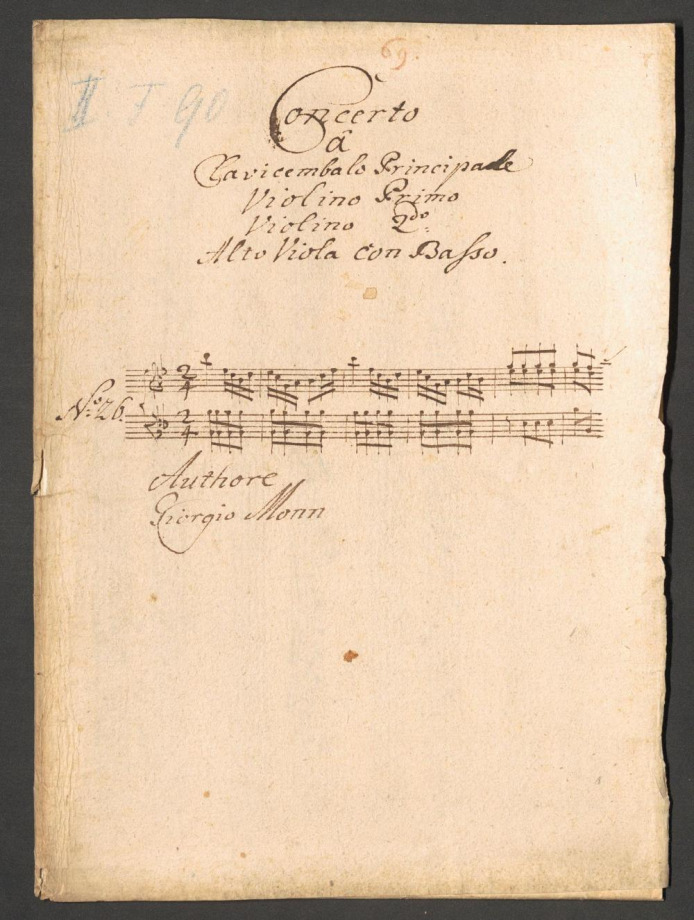 69.
II F 90
Concerto
â
Clavicembalo Principale
Violino Primo
Violino 2do:
Alto Viola Con Basso.
No: 26.
2/4
2/4
Authore
Giorgio Monn